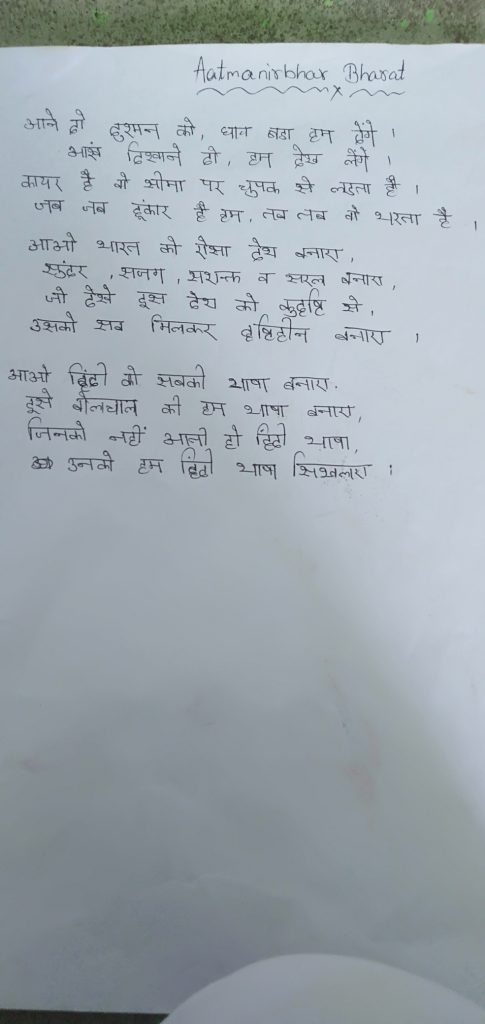 Aatmanirbhar Bharat
आने दो दुश्मन को, धाव बडा हम देंगे ।
आखं दिखाने दो, हम देख लेंगे ।
कायर है वो सीमा पर चुपक से लडता है ।
जब जब हूंकार है हम, तब तब वो भरता है ।
आओ भारत को ऐसा देश बनाए,
सुंदर, सजग, सशक्त व सरल बनाए,
जो देखे इस देश को कुदृष्टि से,
उसको सब मिलकर दृष्टिहीन बनाए ।
आओ हिंदी को सबकी भाषा बनाए.
इसे बोलचाल की हम भाषा बनाए,
जिनको नहीं आती हो हिंदी भाषा,
उनको हम हिंदी भाषा सिखलाए ।